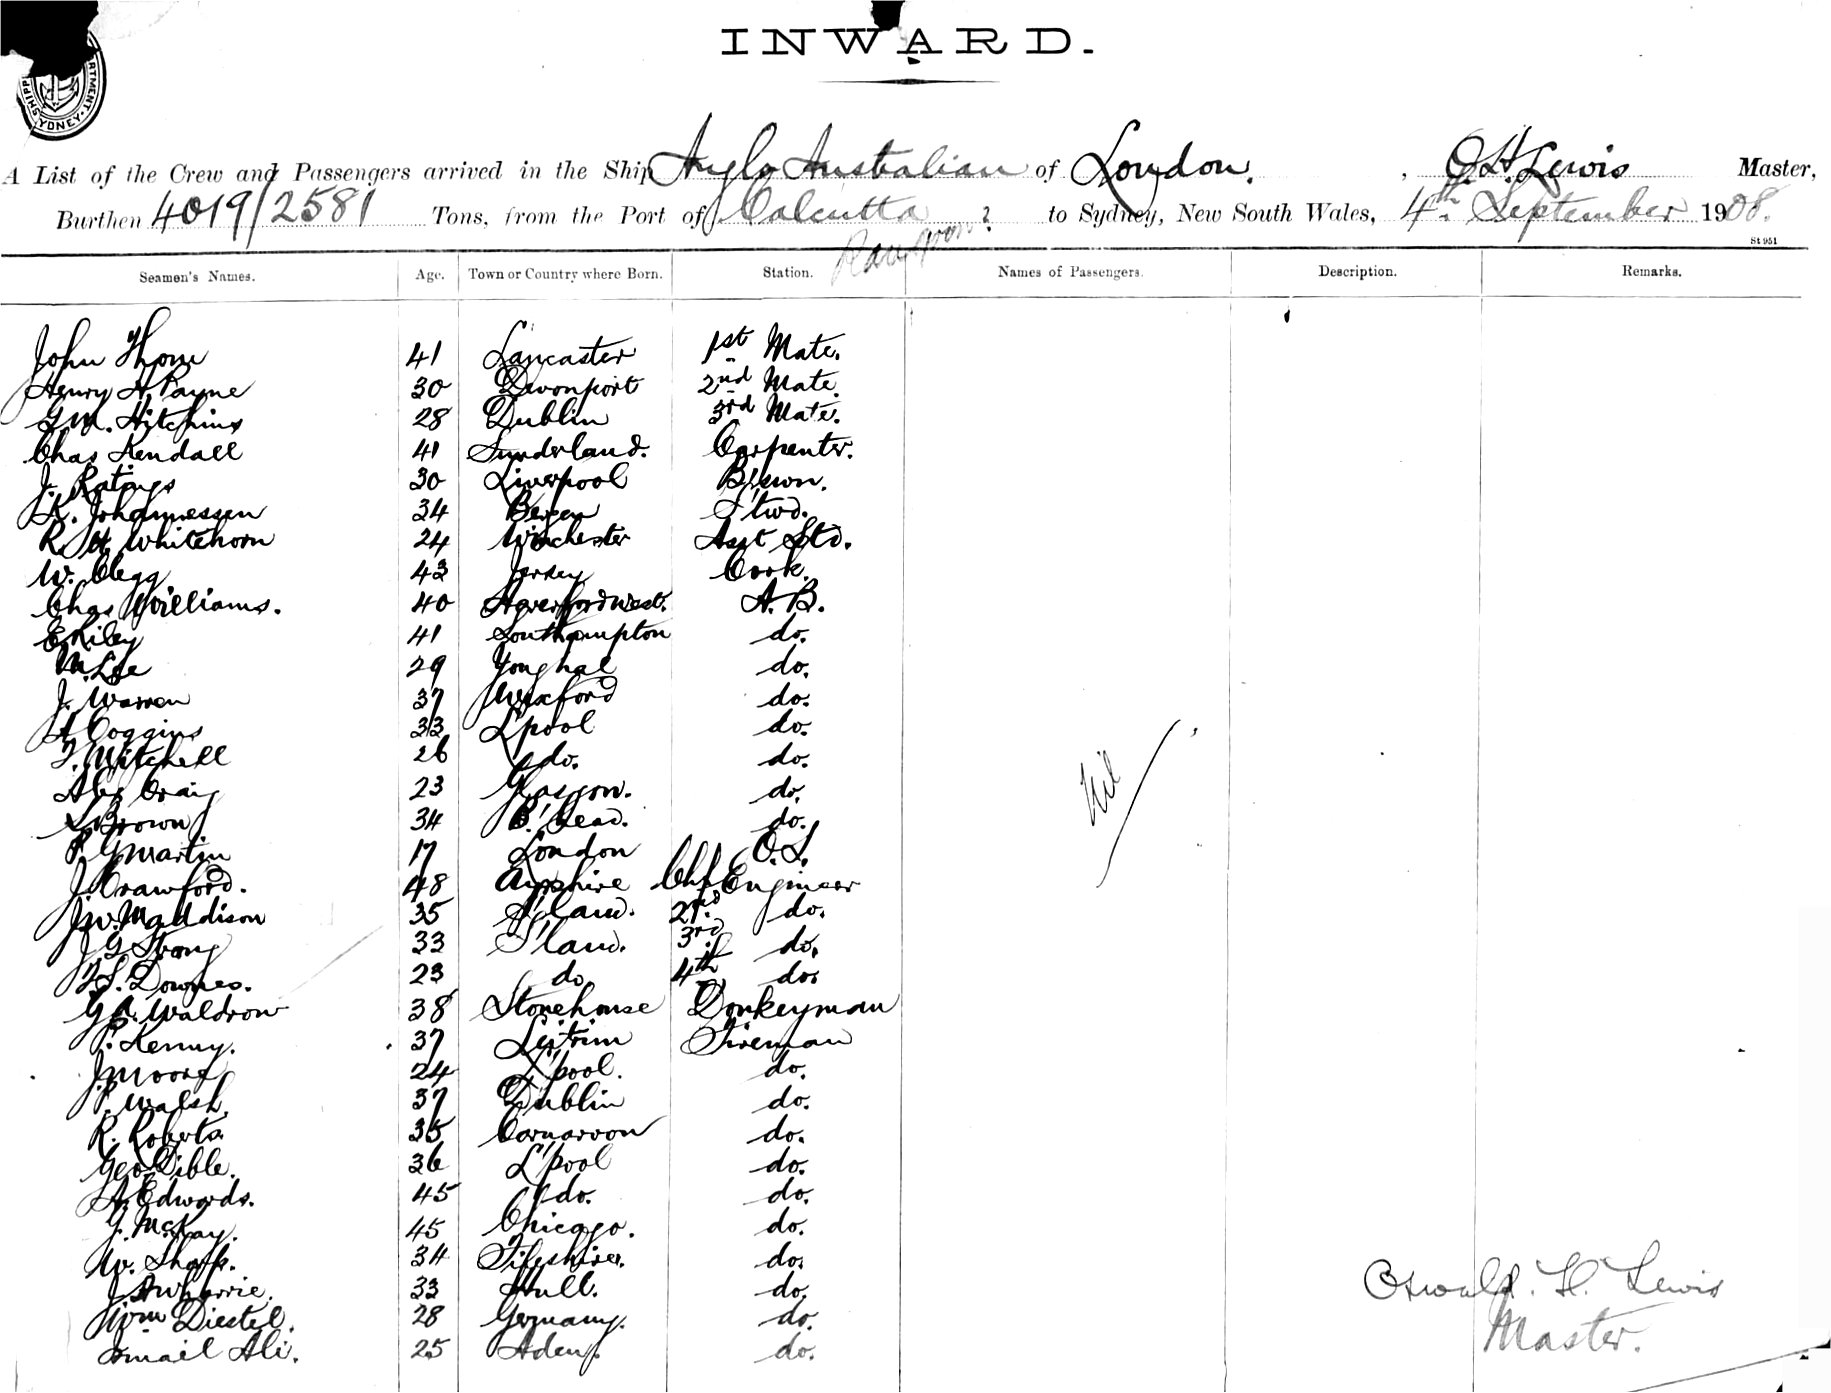 INWARD.
A List of the Crew and Passengers arrived in the Ship Anglo Australian of London. , O. H. Lewis Master,
Burthen 4019/2581 Tons, from the Port of Calcutta ? to Sydney, New South Wales, 4th September 1908.
Rangoon?
St 951
Seamen's Names. Age. Town or Country where Born. Station. Names of Passengers. Description. Remarks.
John Thom 41 Lancaster 1st Mate.
Henry H. Payne 30 Devonport 2nd Mate
G. M. Hitchins 28 Dublin 3rd Mate.
Chas Kendall 41 Sunderland. Carpenter.
J. 30 Liverpool B'swn.
K. Johannessen 34 Bergen S'twd.
R. H. Whitehorn 24 Winchester Asst Std.
W. Clegg 43 Jersey Cook.
Chas Williams. 40 Haverfordwest. A. B.
E Riley 41 Southampton do.
M. Lee 29 Youghal do.
J. Warren 37 Wexford do.
A Coggins 33 L'pool do.
T. Mitchell 26 do. do.
Alex Craig 23 Glasgow. do.
Brown 34 B'head. do.
P. G Martin 17 London O.S.
J Crawford. 48 Ayrshire Chf Engineer
J. W. Maddison 35 S'land. 2nd do.
J G Strong 33 S'land. 3rd do.
Downes. 23 do 4th do.
G A. Waldron 38 Stonehouse Donkeyman
P. Kenny. 37 Leitrim Fireman
J. Moore 24 L'pool. do.
P. Walsh. 37 Dublin do.
R. Roberts. 35 Carnarvon do.
Geo Dible. 36 L'pool do.
A. Edwards. 45 do. do.
J. McKay. 45 Chicago. do.
W. Sharp. 34 Fifeshire. do.
33 Hull. do.
Wm Diestel. 28 Germany. do.
Ismail Ali. 25 Aden. do.
Nil
Oswald. H. Lewis
Master.